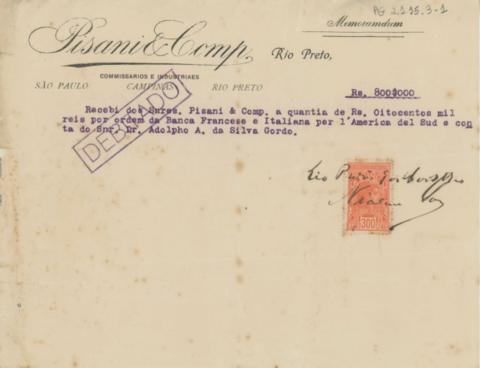 AG 2.1.95.3-1
Memorandum
Pisani & Comp.
Rio Preto,
COMMISSARIOS E INDUSTRIAES
SÃO PAULO CAMPINAS RIO PRETO
Rs. 800$000
DEBITADO
Recebi dos Snres. Pisani & Comp. a quantia de Rs. Oitocentos mil
reis por ordem da Banca Francese e Italiana per l'America del Sud e con
ta do Snr. Dr. Adolpho A. da Silva Gordo.
Rio
300